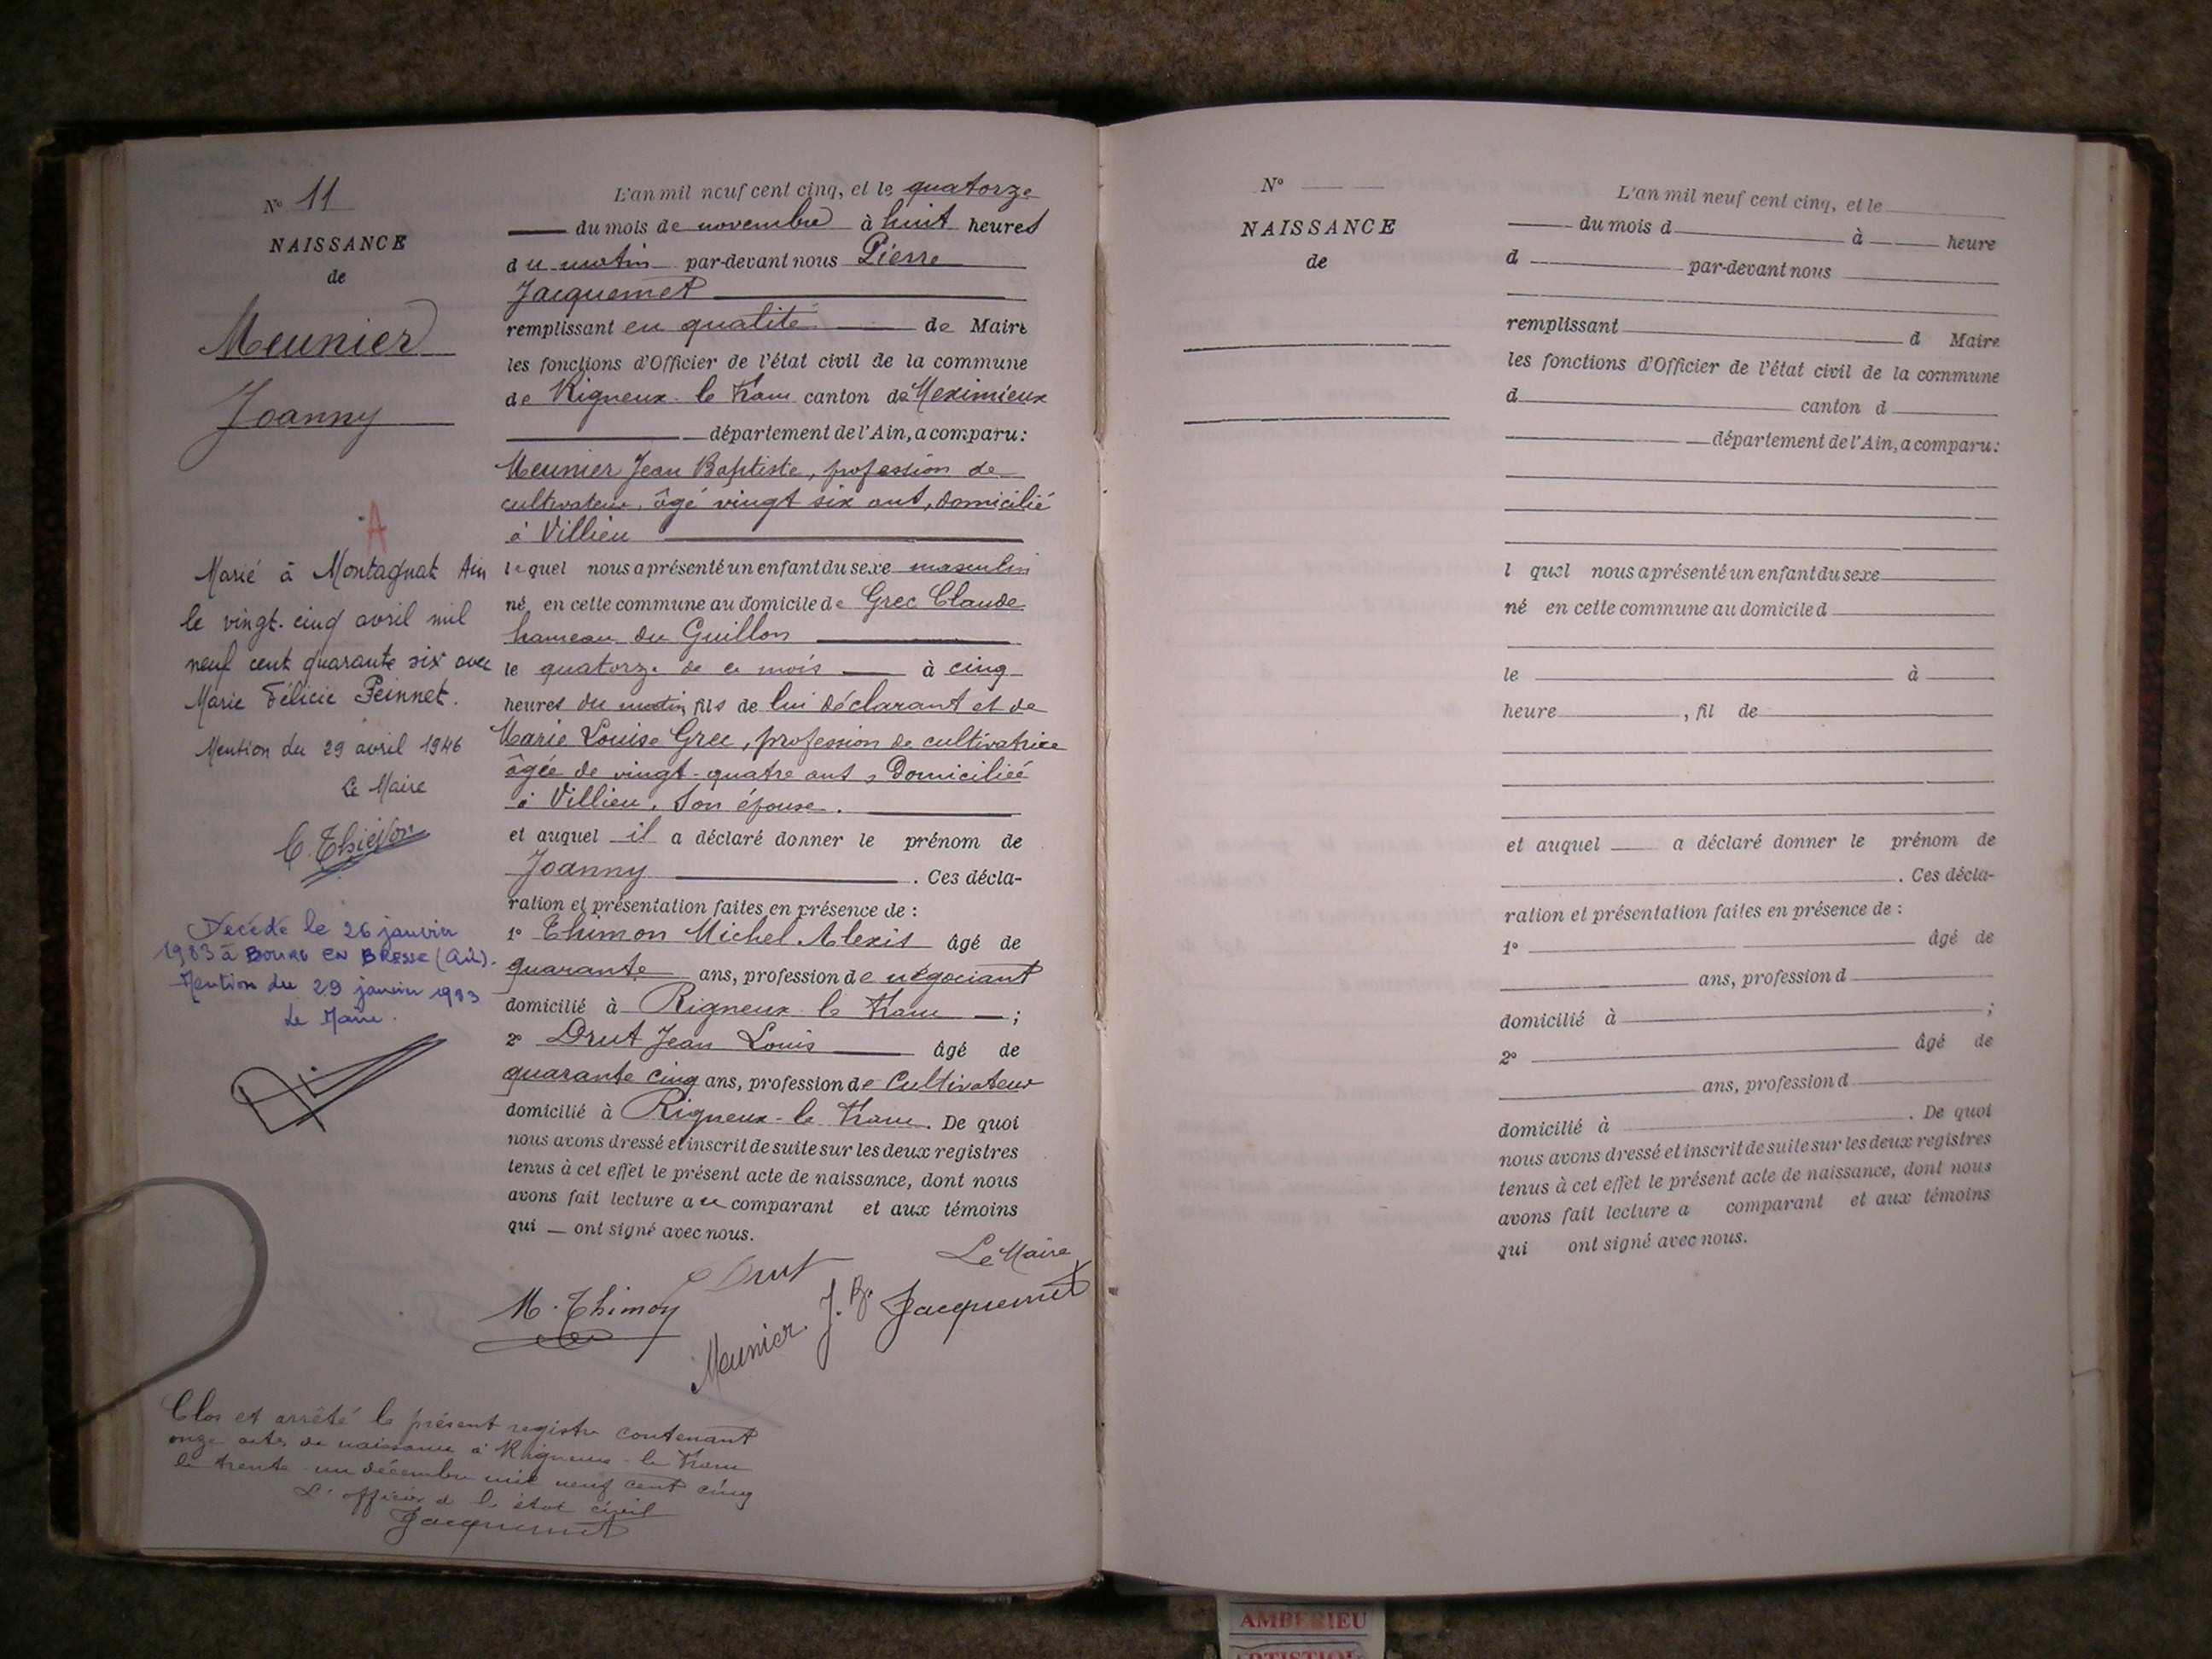 N° 11
NAISSANCE
de
Meunier
Joanny
A
Marié à Montagnat Ain
le vingt-cinq avril mil
neuf cent quarante six avec
Marie Félicie Peinnet.
Mention du 29 avril 1946
Le Maire
Décédé le 26 janvier
1983 à BOURG EN BRESSE (Ain).
Mention du 29 janvier 1983
Le Maire.
L'an mil neuf cent cinq, et le quatorze
du mois de novembre à huit heures
du matin par-devant nous Pierre
Jacquemet
remplissant en qualité de Maire
les fonctions d'Officier de l'état civil de la commune
de Rigneux-le-Franc canton de Meximieux
département de l'Ain, a comparu:
Meunier Jean Baptiste, profession de
cultivateur, âgé vingt six ans, domicilié
à Villieu
lequel nous a présenté un enfant du sexe masculin
né en cette commune au domicile de Grec Claude
hameau du Guillon
le quatorze de ce mois à cinq
heures du matin, fils de lui déclarant et de
Marie Louise Grec, profession de cultivatrice
âgée de vingt-quatre ans, Domiciliée
à Villieu, son épouse.
et auquel il a déclaré donner le prénom de
Joanny . Ces décla-
ration et présentation faites en présence de :
1° Thimon Michel Alexis âgé de
quarante ans, profession de négociant
domicilié à Rigneux-le-Franc ;
2° Drut Jean Louis âgé de
quarante cinq ans, profession de Cultivateur
domicilié à Rigneux-le-Franc. De quoi
nous avons dressé et inscrit de suite sur les deux registres
tenus à cet effet le présent acte de naissance, dont nous
avons fait lecture au comparant et aux témoins
qui ont signé avec nous.
Drut Le Maire
M. Thimon Meunier J. B. Jacquemet
Clos et arrêté le présent registre contenant
onze actes de naissance à Rigneux-le-Franc
le trente-un décembre mil neuf cent cinq
L'officier de l'état civil
Jacquemet
N°
NAISSANCE
de
L'an mil neuf cent cinq, et le
du mois d à heure
d par-devant nous
remplissant d Maire
les fonctions d'Officier de l'état civil de la commune
d canton d
département de l'Ain, a comparu:
l quel nous a présenté un enfant du sexe
né en cette commune au domicile d
le à
heure , fil de
et auquel a déclaré donner le prénom de
. Ces décla-
ration et présentation faites en présence de :
1° âgé de
ans, profession d
domicilié à ;
2° âgé de
ans, profession d
domicilié à . De quoi
nous avons dressé et inscrit de suite sur les deux registres
tenus à cet effet le présent acte de naissance, dont nous
avons fait lecture a comparant et aux témoins
qui ont signé avec nous.
AMBERIEU